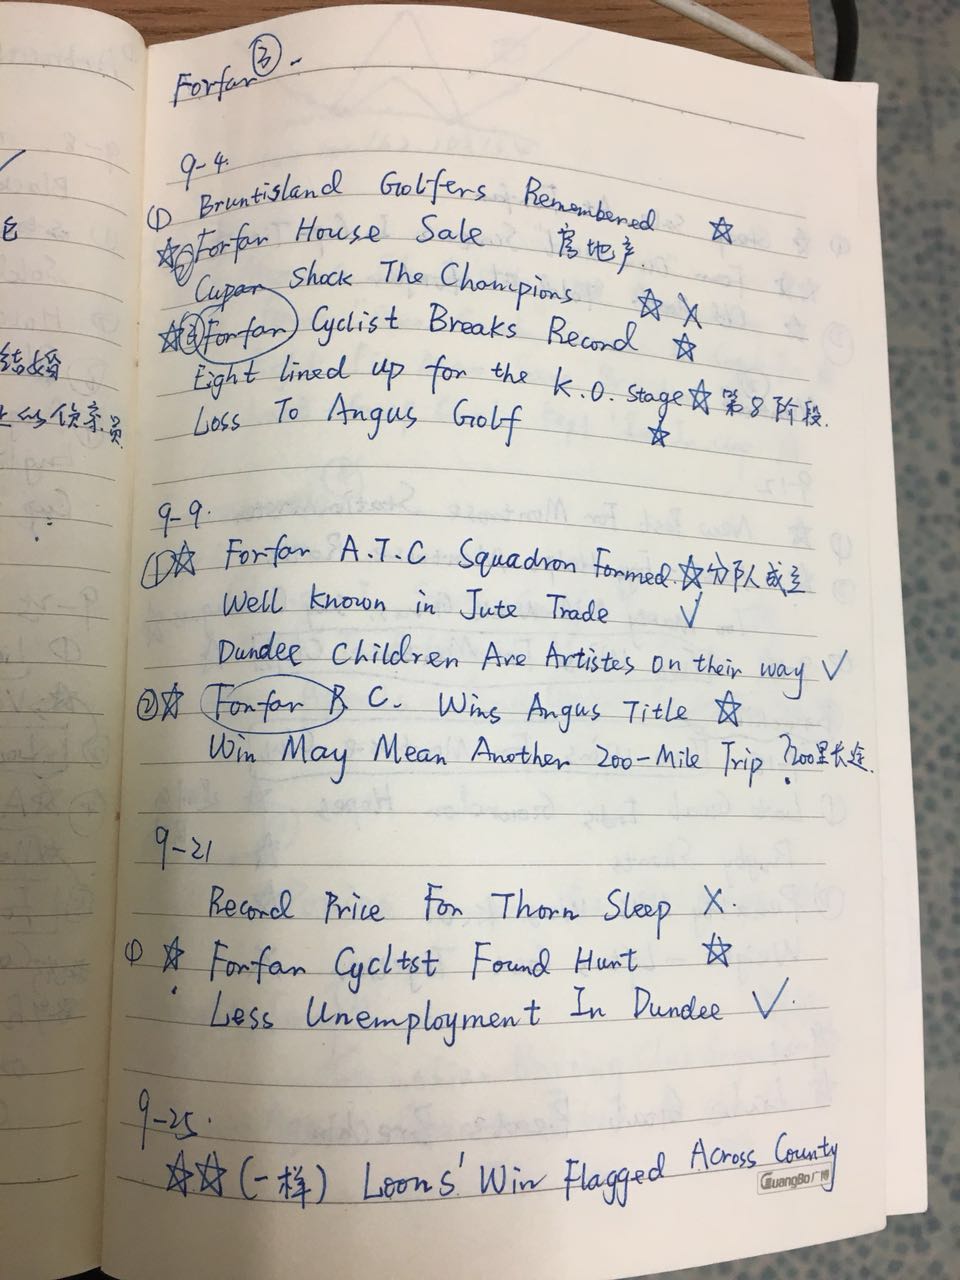 Forfar ③.
9-4.
① Bruntisland Golfers Remembered ☆
☆② Forfar House Sale 房地产.
Cupar Shock The Champions ☆ X
☆③ Forfar Cyclist Breaks Record ☆
Eight lined up for the K.O. Stage ☆ 第8阶段.
Loss To Angus Golf ☆
9-9.
①☆ Forfar A.T.C Squadron Formed. ☆分队成立
Well Known in Jute Trade ✓
Dundee Children Are Artistes on their way ✓
②☆ Forfar R C. Wins Angus Title ☆
Win May Mean Another 200-Mile Trip ? 200里长途.
9-21
Record Price For Thorn Sleep X.
① ☆ Forfar Cycltst Found Hunt ☆
Less Unemployment In Dundee ✓.
9-25.
☆☆(一样) Loons' Win Flagged Across County
GuangBo 广博
结婚
员
?